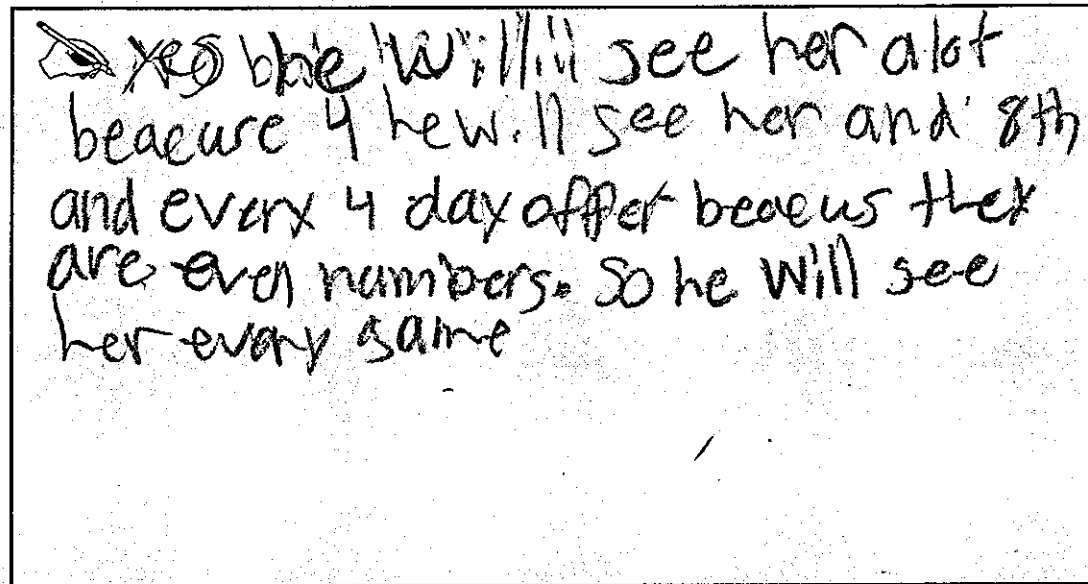 Yes he will see her alot
beaeuse 4 he will see her and 8th
and every 4 day affter beaeus they
are even numbers. So he will see
her every game